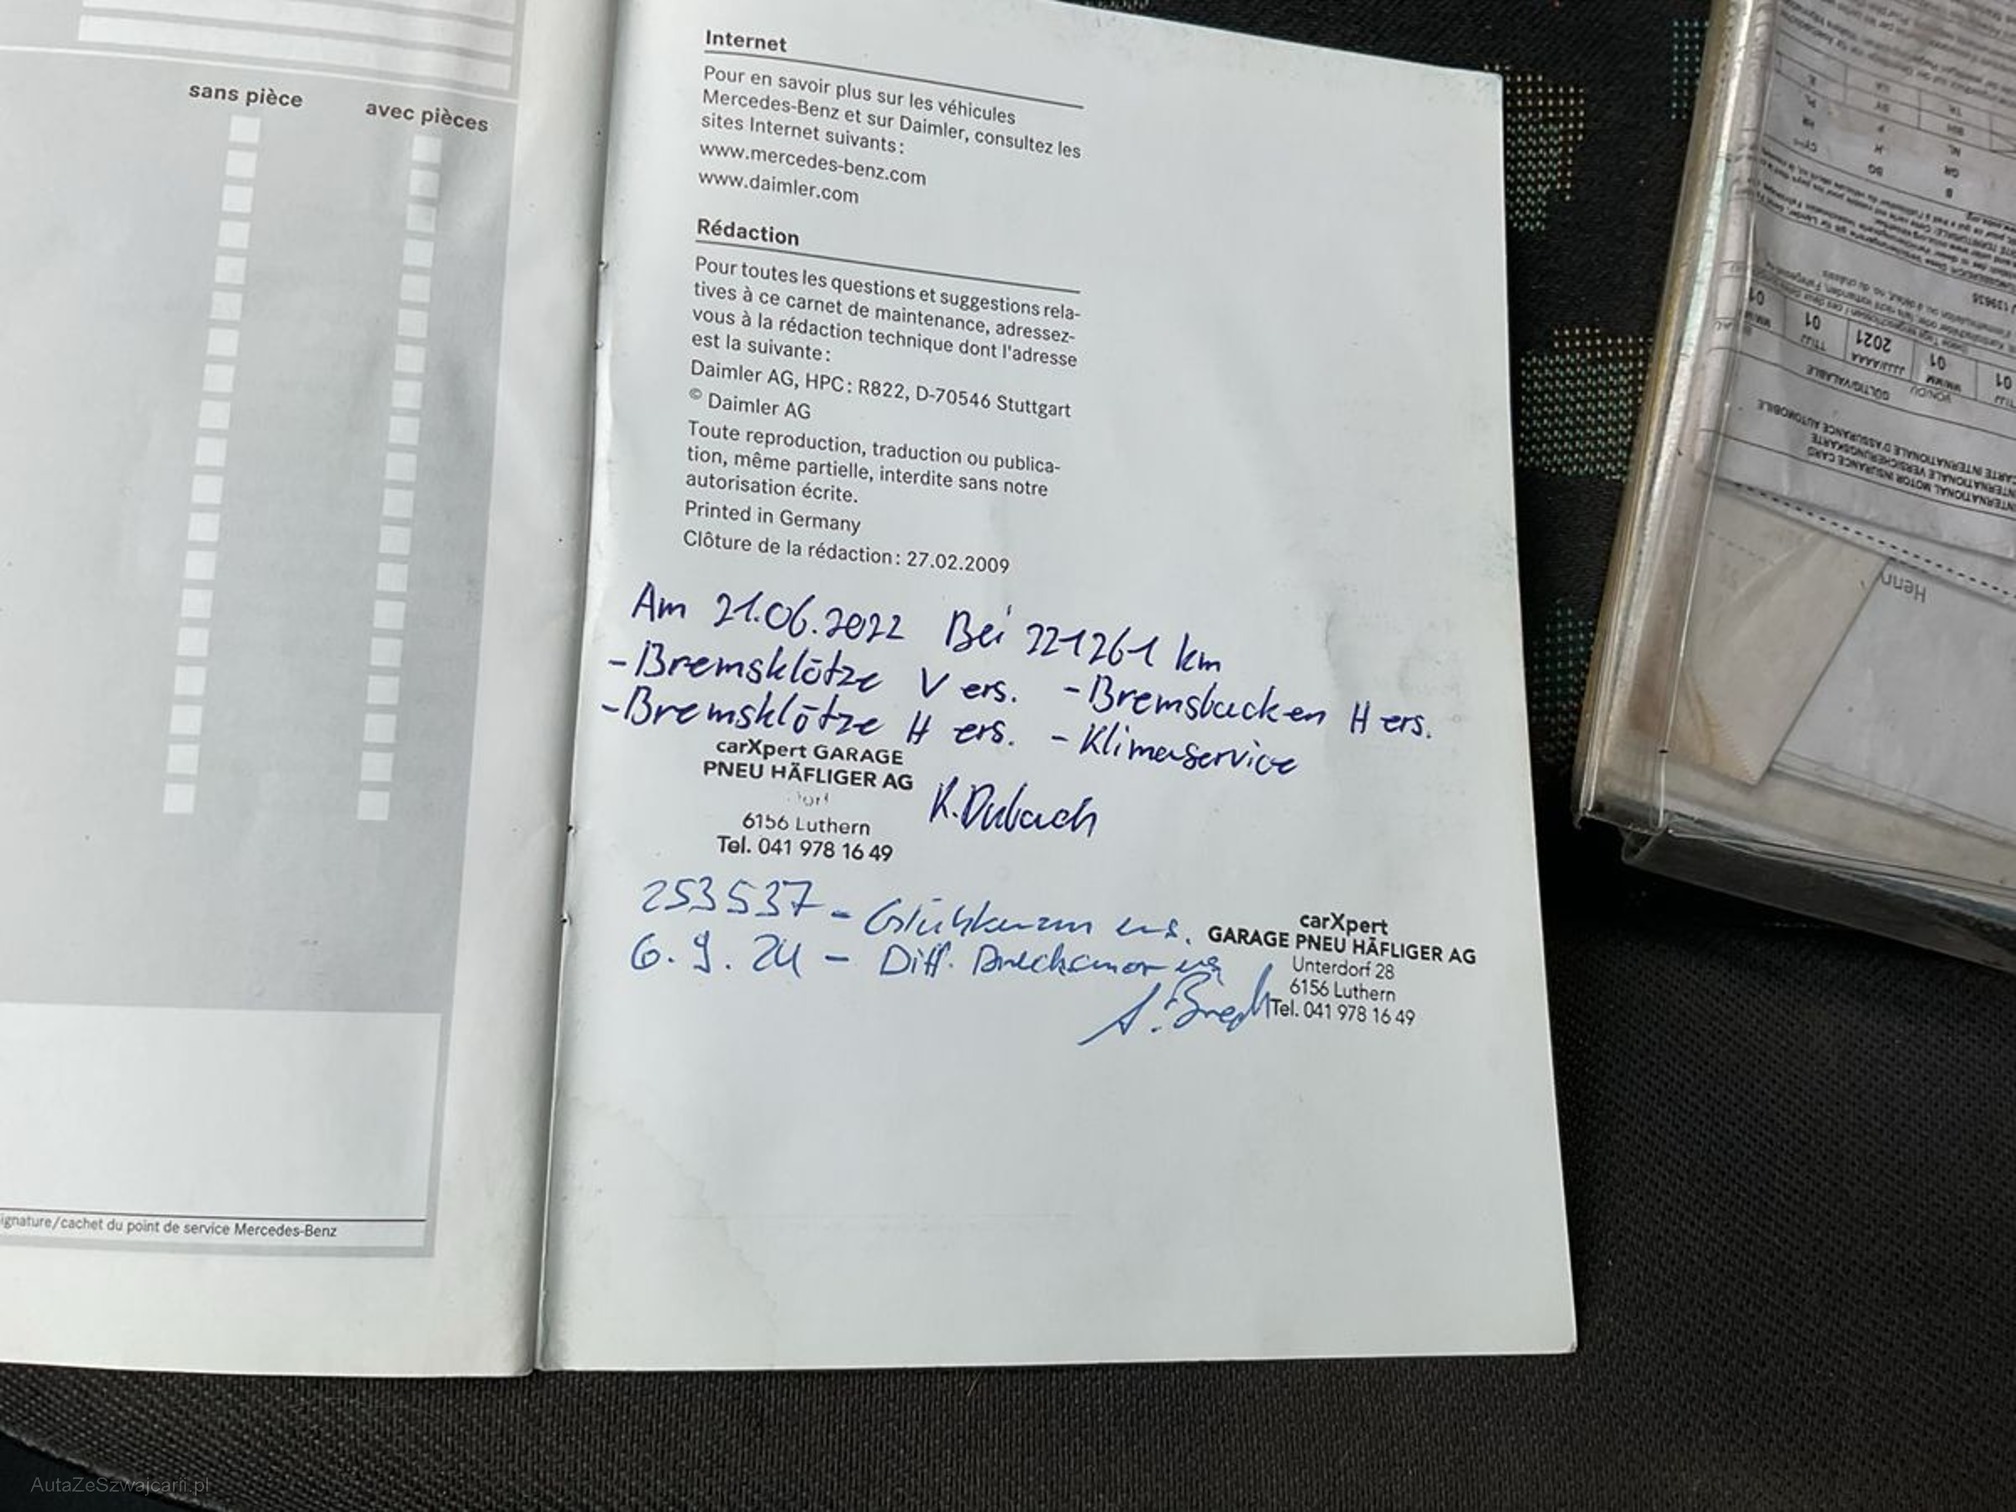 sans pièce
avec pièces
ignature/cachet du point de service Mercedes-Benz
Internet
Pour en savoir plus sur les véhicules
Mercedes-Benz et sur Daimler, consultez les
sites Internet suivants :
www.mercedes-benz.com
www.daimler.com
Rédaction
Pour toutes les questions et suggestions rela-
tives à ce carnet de maintenance, adressez-
vous à la rédaction technique dont l'adresse
est la suivante :
Daimler AG, HPC: R822, D-70546 Stuttgart
© Daimler AG
Toute reproduction, traduction ou publica-
tion, même partielle, interdite sans notre
autorisation écrite.
Printed in Germany
Clôture de la rédaction : 27.02.2009
Am 21.06.2022 Bei 221261 km
-Bremsklötze V ers. -Bremsbacken H ers.
-Bremsklötze H ers. -Klimaservice
carXpert GARAGE
PNEU HÄFLIGER AG
6156 Luthern
Tel. 041 978 16 49
K. Dubach
253537 - Glühkerzen ers.
6.9.24 - Diff. Drucksensor
carXpert
GARAGE PNEU HÄFLIGER AG
Unterdorf 28
6156 Luthern
Tel. 041 978 16 49
INTERNATIONAL MOTOR INSURANCE CARD
INTERNATIONALE VERSICHERUNGSKARTE
CARTE INTERNATIONALE D'ASSURANCE AUTOMOBILE
GÜLTIG/VALABLE
VON/DU
01 01 2021 01 01
Henn
AutaZeSzwajcarii.pl